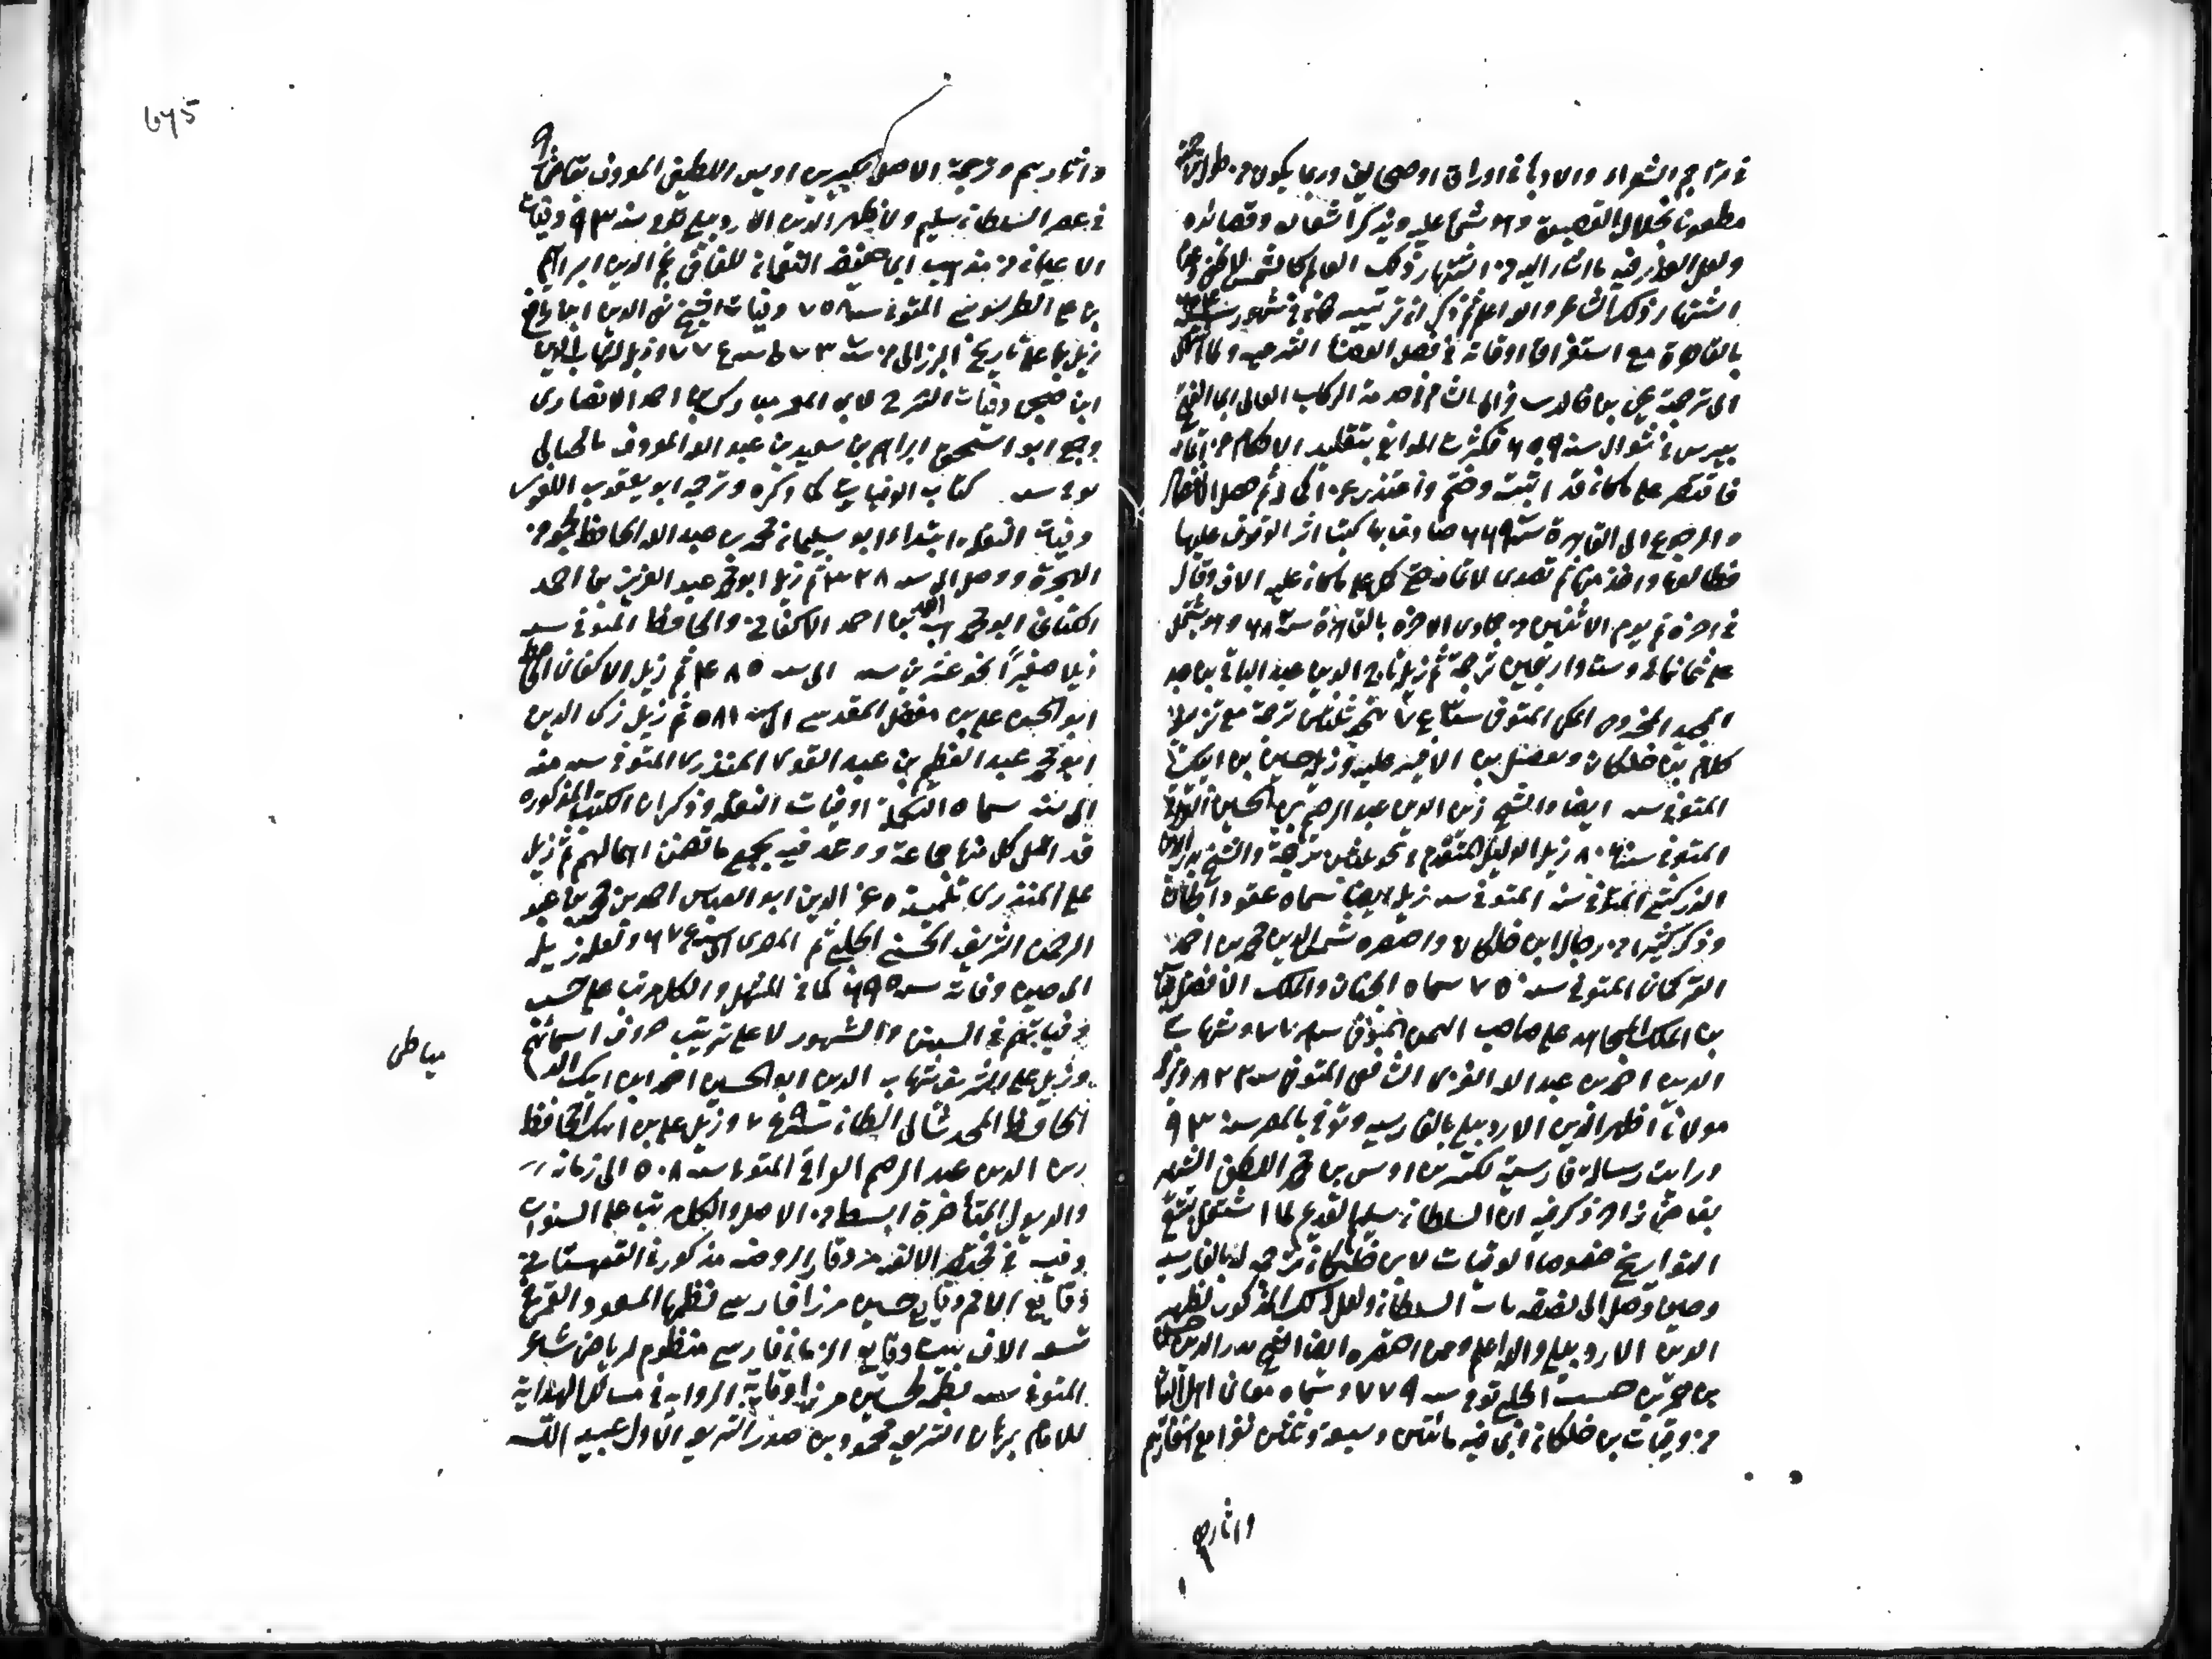 في تراجم الشعراء والادبا في اوراق او صحايف وربما يكون من
مطعونا بخلال العقيدة وهو شنعا عليه ويذكر اشعاره وقصائده
ولعل العذر فيه ما اشار اليه من اشتهار ذلك العالم كالشمس
اشتهار ذلك الشاعر والله اعلم ثم ذكر انه ترتيبه كان في شهور سنة
بالقاهرة مع استغراق اوقاته في فصل القضايا الشرعيه ولما انتهى
الى ترجمة يحيى بن خالد سافر الى الشام في خدمة الركاب العالى ابي الفتح
بيبرس في شوال سنة ٦٥٩ فكثرت الموانع بتقليد الاحكام عن اتمامه
فاقتصر على ما كان قد اثبته وختم واعتذر عن اكماله ثم حصل الانفصال
والرجوع الى القاهرة سنة ٦٦٩ صادف بها كتبا اثر الوقوف عليها
فطالعها واخذ منها ثم تصدى لاتمامه حتى كمل على ما كان عليه الان وقال
في اخره تم يوم الاثنين من جمادى الاخرة بالقاهرة سنة ٦٨ وهو يشتمل
على ثمانمائة وست واربعين ترجمة ثم ذيل تاج الدين عبد الباقي بن عبد
المجيد المخزومى المكى المتوفى سنة ٧٤٣ بنحو ثلثين ترجمة مع تزييل
كلام بن خلكان وتفضيل بن الاثير عليه وذيل حسين بن ايبك
المتوفى سنه ايضا والشيخ زين الدين عبد الرحيم بن الحسين العراقي
المتوفى سنة ٨٠٦ ذيل الوليد المتقدم بنحو ثلثين ترجمة والشيخ بدر الدين
الزركشي المتوفى سنه ذيل ايضا سماه عقود الجمان
وذكر كثيرا من رجال ابن خلكان واختصره شمس الدين محمد بن احمد
التركمان المتوفى سنه ٧٥٠ سماه الجنان والملك الافضل عباس
بن الملك المجاهد على صاحب اليمن المتوفى سنه ٧٧٨ وشهاب
الدين احمد بن عبد الله الغزى الشافعى المتوفى سنه ٨٢٢ وترجمه
مولانا ظهير الدين الاردبيلي بالفارسيه وتوفى بالمصر سنه ٩٣٠
ورايت رسالة فارسية لكبير بن اويس بن محمد اللطيفى الشهير
بقاضى زاده ذكر فيه ان السلطان سليم القديم لما اشتغل بتتبع
التواريخ خصوصا الوفيات لابن خلكان ترجمه له بالفارسيه
وحين وصل الى نصفه مات السلطان ولعل ذلك المذكور لظهير
الدين الاردبيلى والله اعلم وممن اختصره ايضا الشيخ بدر الدين حسن
بن عمر بن حبيب الحلبى توفى سنه ٧٧٩ وسماه معانى اهل البيان
من وفيات بن خلكان اتى فيه مائتين وسبعة وثلثين
واثارهم
واثارهم وترجمة الاصل لكبير بن اويس اللطيفى المعروف بقاضى زاده
في عصر السلطان سليم ولظهير الدين الاردبيلي سنه ٩٣٠ وفيات
الاعيان من مذهب ابى حنيفة النعمان للقاضى نجم الدين ابراهيم
بن على الطرسوسى المتوفى سنه ٧٥٨ وفيات الشيخ تقى الدين ابن رافع
ذيل بها على تاريخ البرزالى من سنة ٧٣ الى سنه ٧٧٤ وذيل لشهاب الدين
ابن حجى وفيات الشرح لابى المعمر مبارك بن احمد الانصارى
وجمع ابو اسحق ابراهيم بن سعيد بن عبد الله المعروف بالحبالى
توفى سنه كتاب الوفيات كما ذكره وترجمه ابو يعقوب اللغوى
وفيات النقله ابتداء ابو سليمان محمد بن عبد الله الحافظ فجمع من
الهجرة ووصل الى سنه ٣٣٨ ثم ذيل ابو محمد عبد العزيز بن احمد
الكتانى ابو محمد هبة الله بن احمد الاكفانى والحافظ المتوفى سنه
ذيلا صغيرا نحو عشرين سنه الى سنه ٤٨٥ ثم ذيل الاكفان الحافظ
ابو الحسن على بن مفضل المقدسى الى سنه ٥٨١ ثم ذيل زكى الدين
ابو محمد عبد العظيم بن عبد القوى المنذرى المتوفى سنه منه
الى سنه سماه التكملة لوفيات النقله وذكر ان الكتب المذكوره
قد اهمل كل منها جماعة ووعد فيه بجمع ما تضمن اهمالهم ثم ذيل
على المنذرى تلميذه عز الدين ابو العباس احمد بن محمد بن عبد
الرحمن الشريف الحسنى الحلبى ثم المصرى الى سنه ٦٧٤ ولعله ذيله
الى حين وفاته سنه ٦٩٥ كما في المنهل والكل مرتب على حسب
وفياتهم في السنين والشهور لا على ترتيب حروف اسمائهم
وذيل على الشريف شهاب الدين ابو الحسين احمد بن ايبك الد
مياطى
الحافظ المحدث الى الطاعون سنه ٧٤٩ وذيل على بن ايبك الحافظ
زين الدين عبد الرحيم العراقى المتوفى سنه ٨٠٥ الى زمانه
والذيول المتأخرة ابسط من الاصل والكل مرتب على السنوات
وفيه في مختصر الالفه من وقار الروضه مذكور في القهستانى
وقايع الامم وقايع حسين مرزا فارسى نظمها المسعود القمى في
تسعه الاف بيت وقايع الزمان فارسى منظوم لرياضى شاعر
المتوفى سنه نظم لحسين مرزا وقاية الرواية في مسائل الهداية
للامام برهان الشريعه محمود بن صدر الشريعه الاول عبيد الله